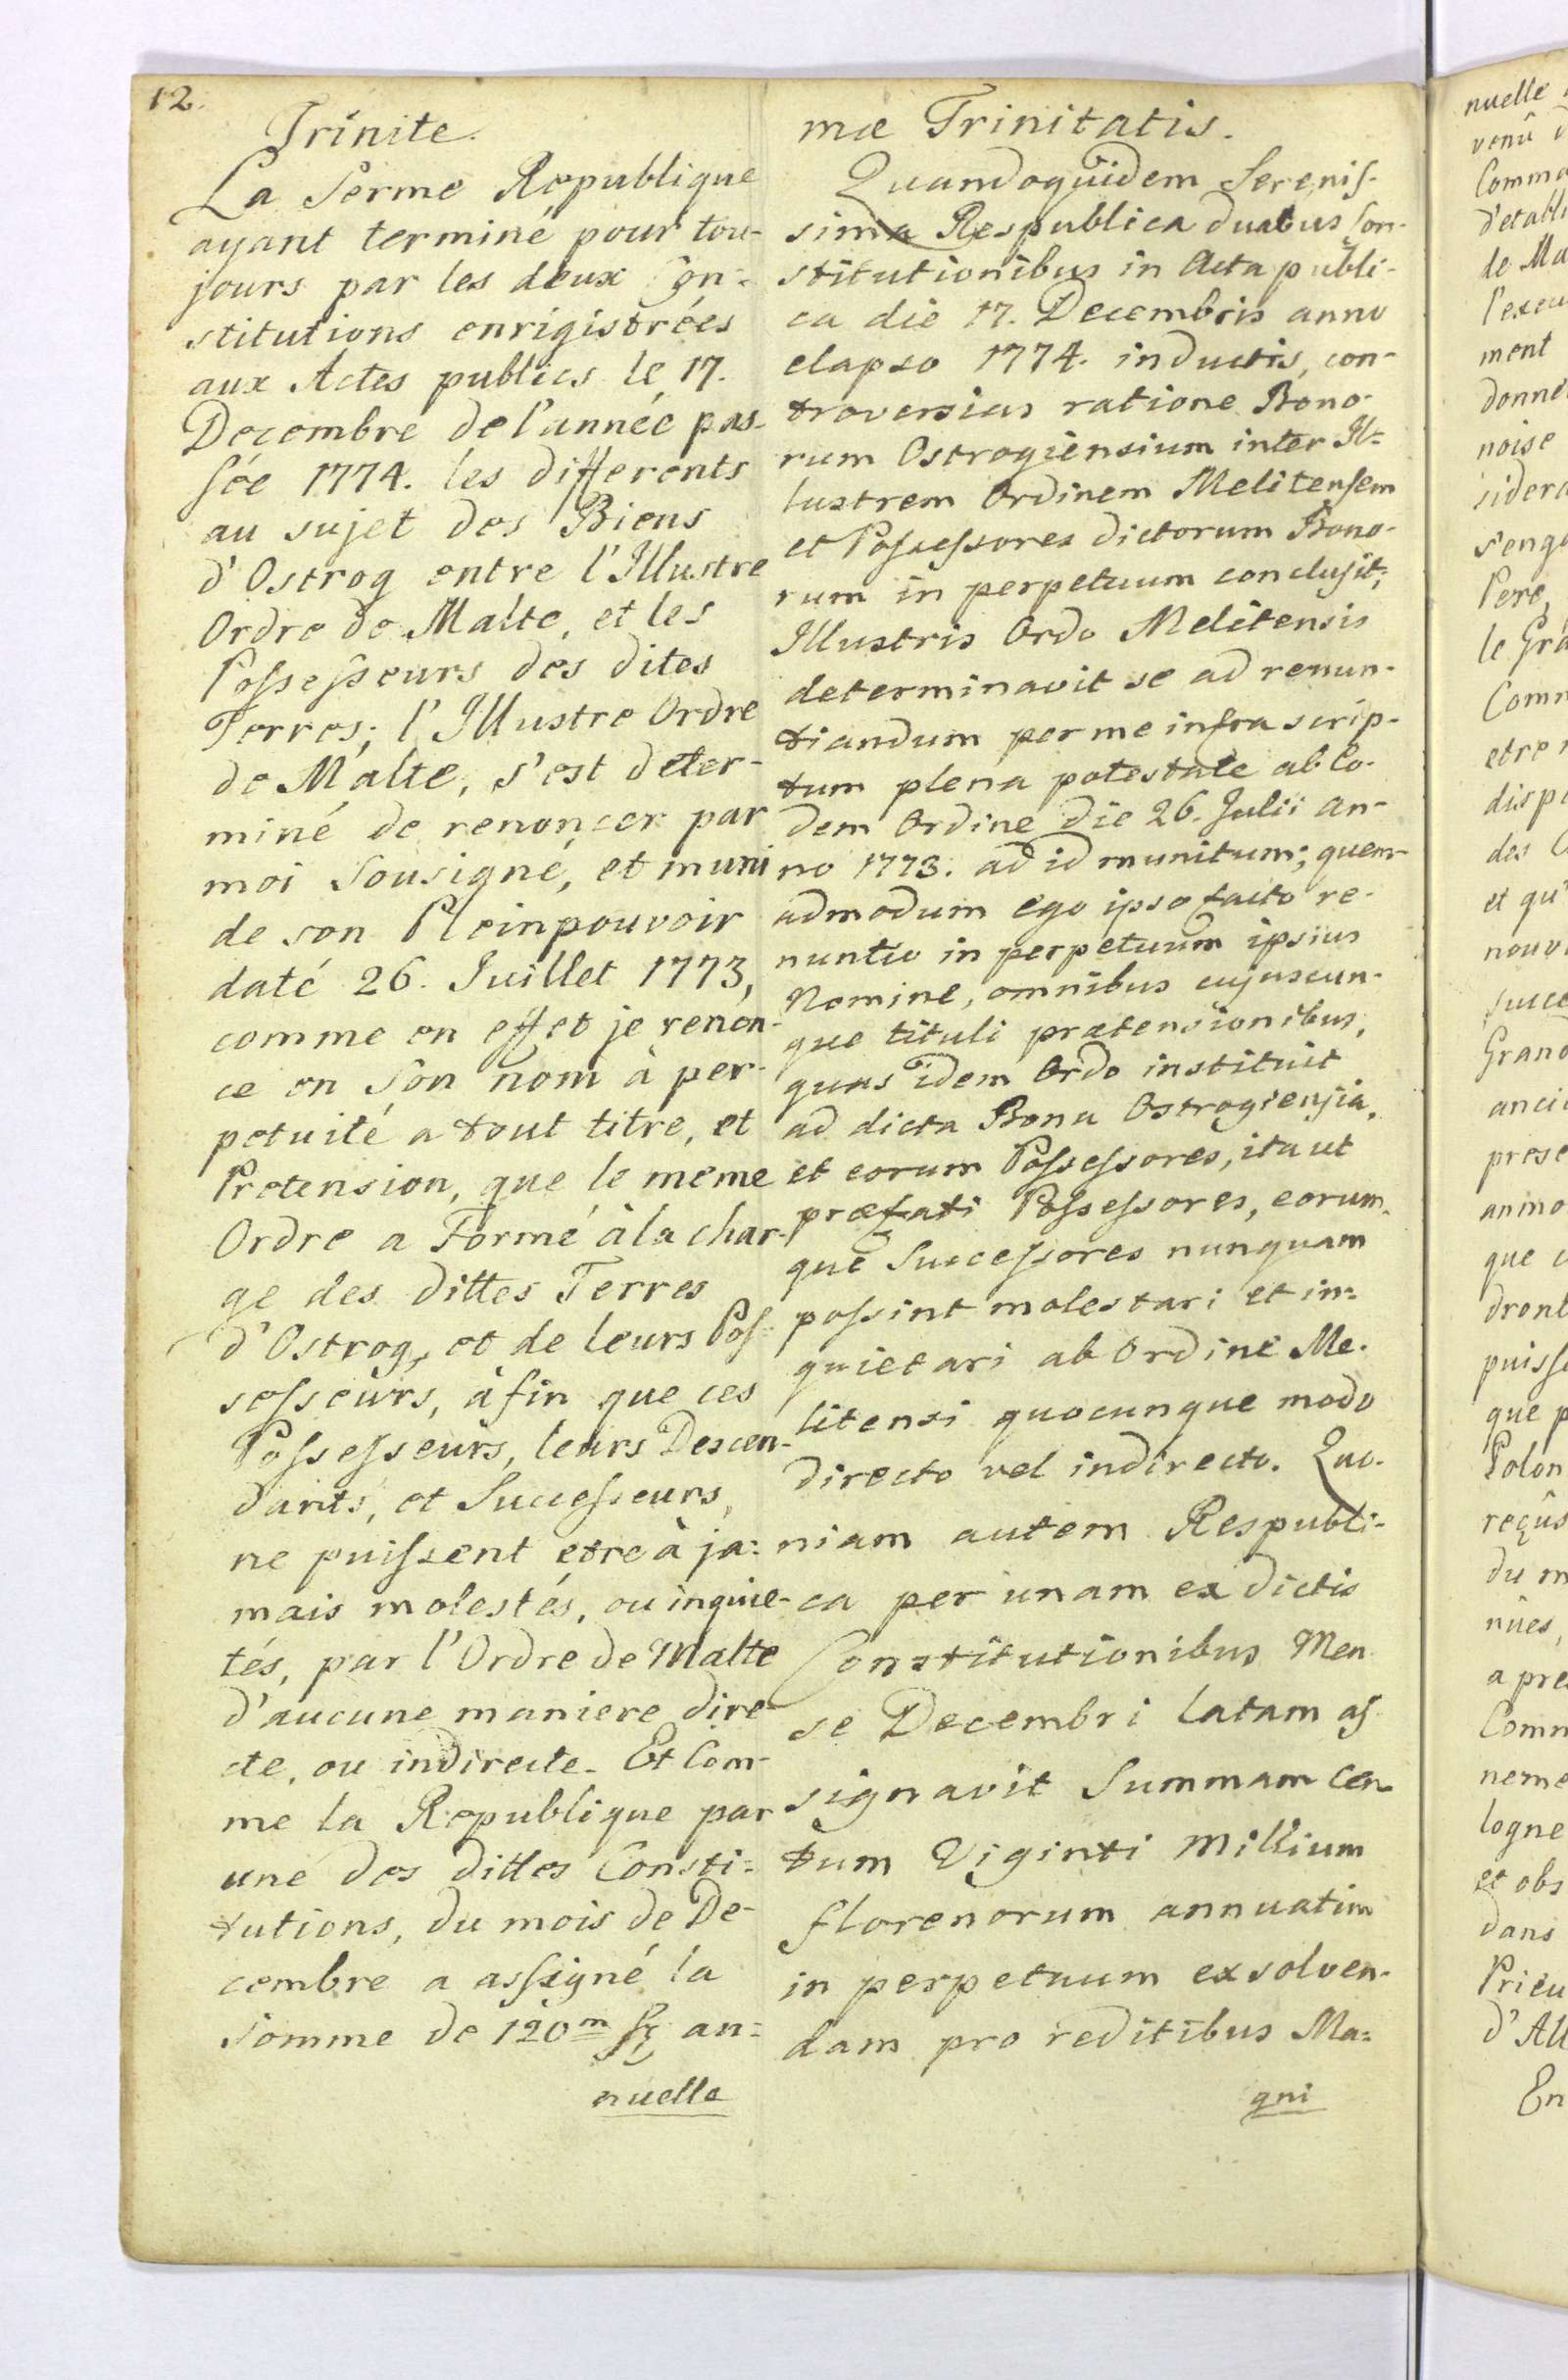 12.
Trinite.
La Serme Republique
ayant terminé pour tou-
jours par les deux Con=
stitutions enrigistrées
aux Actes publics le 17.
Decembre de l'année pas-
sée 1774. les differents
au sujet des Biens
d'Ostrog entre l'Illustre
Ordre de Malte, et les
Possesseurs des dites
Terres; l'Illustre Ordre
de Malte, s'est deter-
miné de renoncer par
moi Sousigné, et muni
de son Pleinpouvoir
daté 26. Juillet 1773,
comme en effet je renon-
ce en Son nom à per-
petuité a tout titre, et
Pretension, que le meme
Ordre a Formé à la char-
ge des dittes Terres
d'Ostrog, et de leurs Pos-
sesseurs, àfin que ces
Possesseurs, leurs Descen-
dants, et Successeurs,
ne puissent etre à ja=
mais molestés, ou inquie-
tés, par l'Ordre de Malte
d'aucune maniere dire-
cte, ou indirecte. Et Com-
me la Republique par
une des dittes Consti=
tutions, du mois de De-
cembre a assigné la
somme de 120m fl an=
nuelle
mæ Trinitatis.
Quandoquidem Serenis-
sima Respublica duabus Con-
stitutionibus in Acta publi-
ca die 17. Decembris anno
elapso 1774. inductis, con-
troversias ratione Bono-
rum Ostrogiensium inter Il=
lustrem Ordinem Melitensem
et Possessores dictorum Bono-
rum in perpetuum conclusit;
Illustris Ordo Melitensis
determinavit se ad renun-
tiandum per me infra scrip-
tum plena potestate ab Eo-
dem Ordine die 26. Julii an-
no 1773. ad id munitum; quem-
admodum ego ipso facto re-
nuntio in perpetuum ipsius
Nomine, omnibus cujuscun-
que tituli prætensionibus,
quas idem Ordo instituit
ad dicta Bona Ostrogiensia,
et eorum Possessores, ita ut
præfati Possessores, eorum-
que Successores nunquam
possint molestari et in=
quietari ab Ordine Me-
litensi quocunque modo
directo vel indirecto. Quo-
niam autem Respubli-
ca per unam ex dictis
Constitutionibus Men
se Decembri latam as-
signavit Summam Cen-
tum Viginti Millium
florenorum annuatim
in perpetuum exsolven-
dam pro reditibus Ma=
gni
nuelle
venû
Comma
d'etabli
de Ma
l'execu
ment
donné
noise
sidera
s'enga
Pere,
le Gra
Comm
etre
dispo
des
et qu'
nouv
succe
Grand
ancie
prese
anmo
que
dront
puisse
que p
Polon
reçûs
du m
nûes,
a pres
Comm
neme
logne
et obs
dans
Prieu
d'All
En